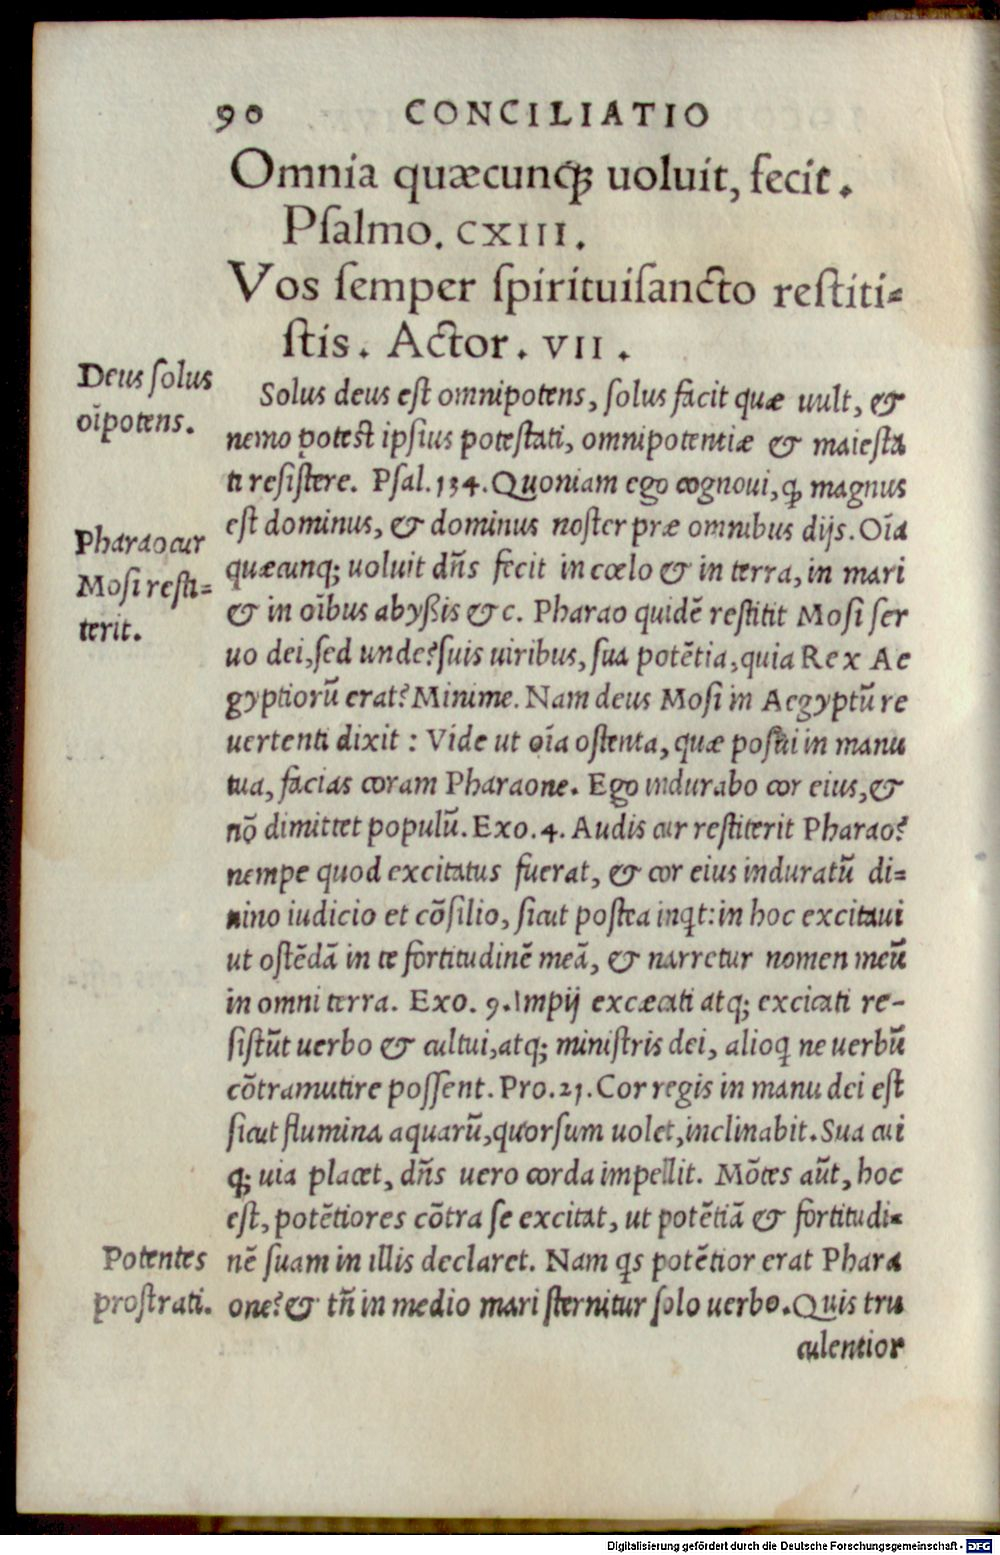 90 CONCILIATIO
Omnia quæcunqꝫ uoluit, fecit.
Pſalmo. CXIII.
Vos ſemper ſpirituiſancto reſtiti-
ſtis. Actor. VII.
Deus ſolus
oı̄potens.
Solus deus eſt omnipotens, ſolus facit quæ uult, &
nemo potest ipſius poteſtati, omnipotentiæ & maieſta
ti reſiſtere. Pſal. 134. Quoniam ego cognoui, ꝙ magnus
eſt dominus, & dominus noster præ omnibus dijs. Oı̄a
Pharao cur
Moſi reſti-
terit.
quæcunqꝫ uoluit dn̄s fecit in cœlo & in terra, in mari
& in oı̄bus abyßis &c. Pharao quidē reſtitit Moſi ſer
uo dei, ſed unde? ſuis uiribus, ſua potētia, quia Rex Ae
gyptiorū erat? Minime. Nam deus Moſi in Aegyptū re
uertenti dixit : Vide ut oı̄a oſtenta, quæ poſui in manu
tua, facias coram Pharaone. Ego indurabo cor eius, &
nō dimittet populū. Exo. 4. Audis cur reſtiterit Pharao?
nempe quod excitatus fuerat, & cor eius induratū di-
uino iudicio et cōſilio, ſicut poſtea inq̇t: in hoc excitaui
ut oſtēdā in te fortitudinē meā, & narretur nomen meū
in omni terra. Exo. 9. Impij excæcati atqꝫ excicati re-
ſiſtūt uerbo & cultui, atqꝫ miniſtris dei, alioq̇ ne uerbū
cōtramutire poſſent. Pro. 21. Cor regis in manu dei eſt
ſicut flumina aquarū, quorſum uolet, inclinabit. Sua cui
qꝫ uia placet, dn̄s uero corda impellit. Mōtes aūt, hoc
eſt, potētiores cōtra ſe excitat, ut potētiā & fortitudi-
Potentes
proſtrati.
nē ſuam in illis declaret. Nam q̇s potētior erat Phara
one? & tn̄ in medio mari ſternitur ſolo uerbo. Quis tru
culentior
Digitalisierung gefördert durch die Deutsche Forschungsgemeinschaft - DFG